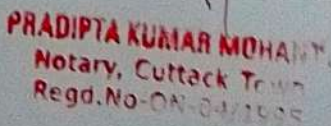 PRADIPTA KUMAR MOHANTY
Notary, Cuttack Town
Regd.No-ON-04/1995